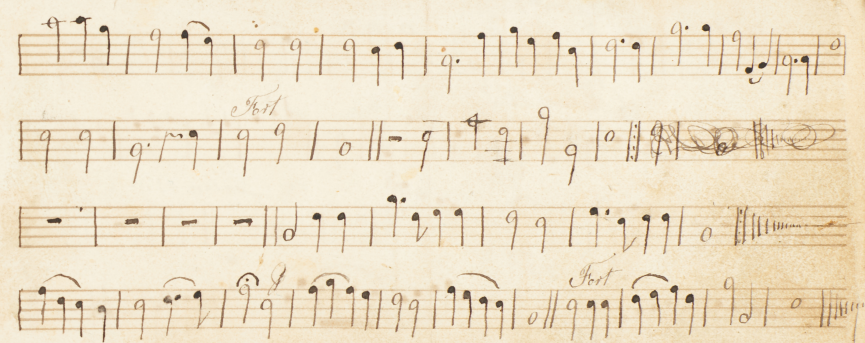 Fort
Fort